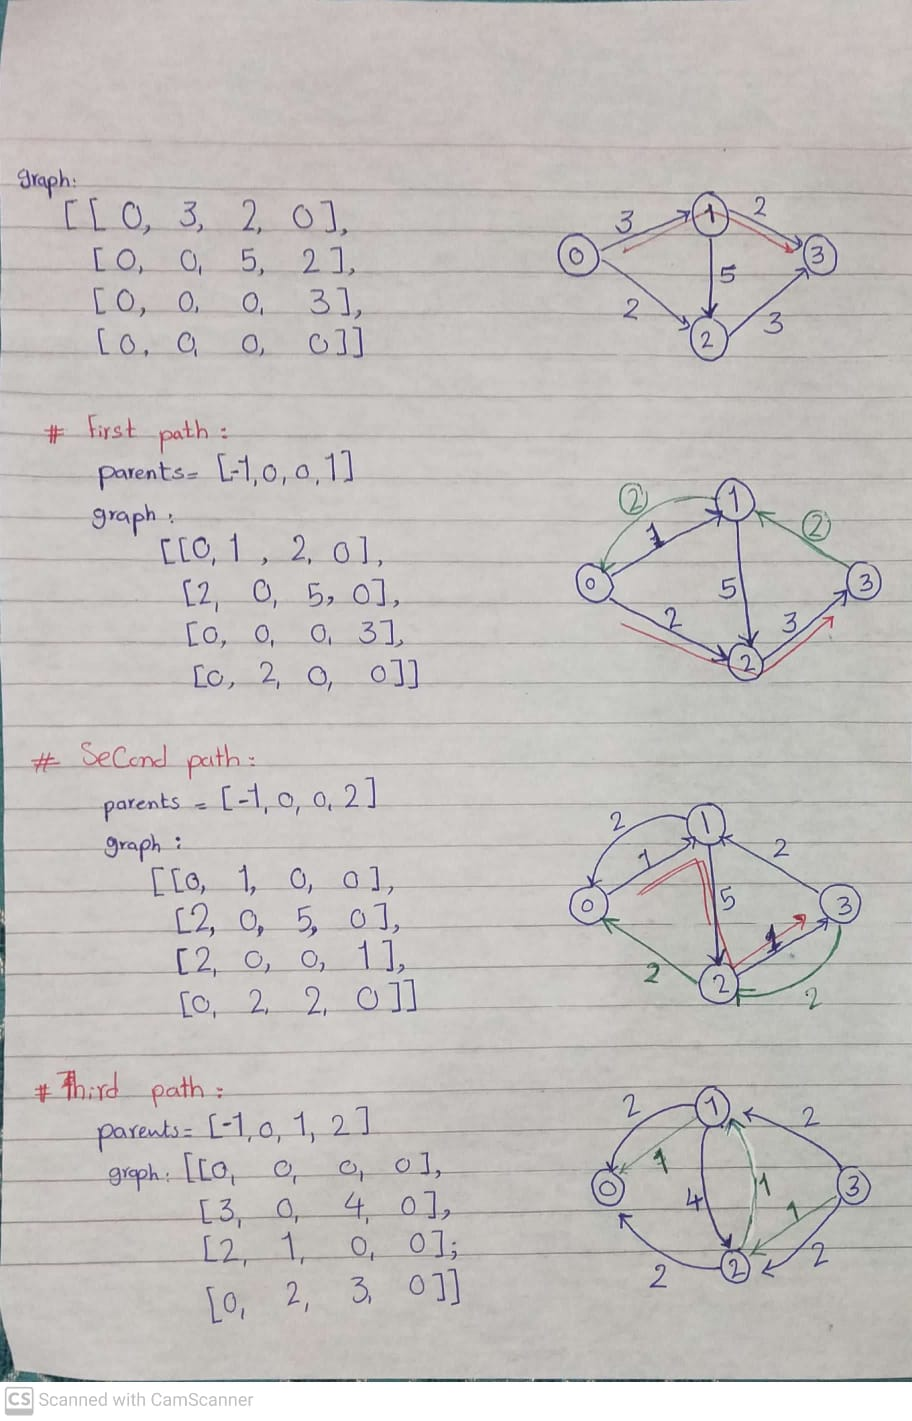 graph:
[[0, 3, 2, 0],
[0, 0, 5, 2],
[0, 0, 0, 3],
[0, 0, 0, 0]]
0
3
1
2
3
5
2
2
3
# First path:
parents= [-1,0,0,1]
graph:
[[0,1, 2, 0],
[2, 0, 5, 0],
[0, 0, 0, 3],
[0, 2, 0, 0]]
2
1
2
1
0
5
3
2
3
2
# Second path:
parents = [-1, 0, 0, 2]
graph:
[[0, 1, 0, 0],
[2, 0, 5, 0],
[2, 0, 0, 1],
[0, 2, 2, 0]]
2
1
2
1
0
5
3
1
2
2
2
# Third path:
parents= [-1,0,1,2]
graph: [[0, 0, 0, 0],
[3, 0, 4, 0],
[2, 1, 0, 0];
[0, 2, 3, 0]]
2
1
2
1
0
4
1
1
3
2
2
2
CS Scanned with CamScanner